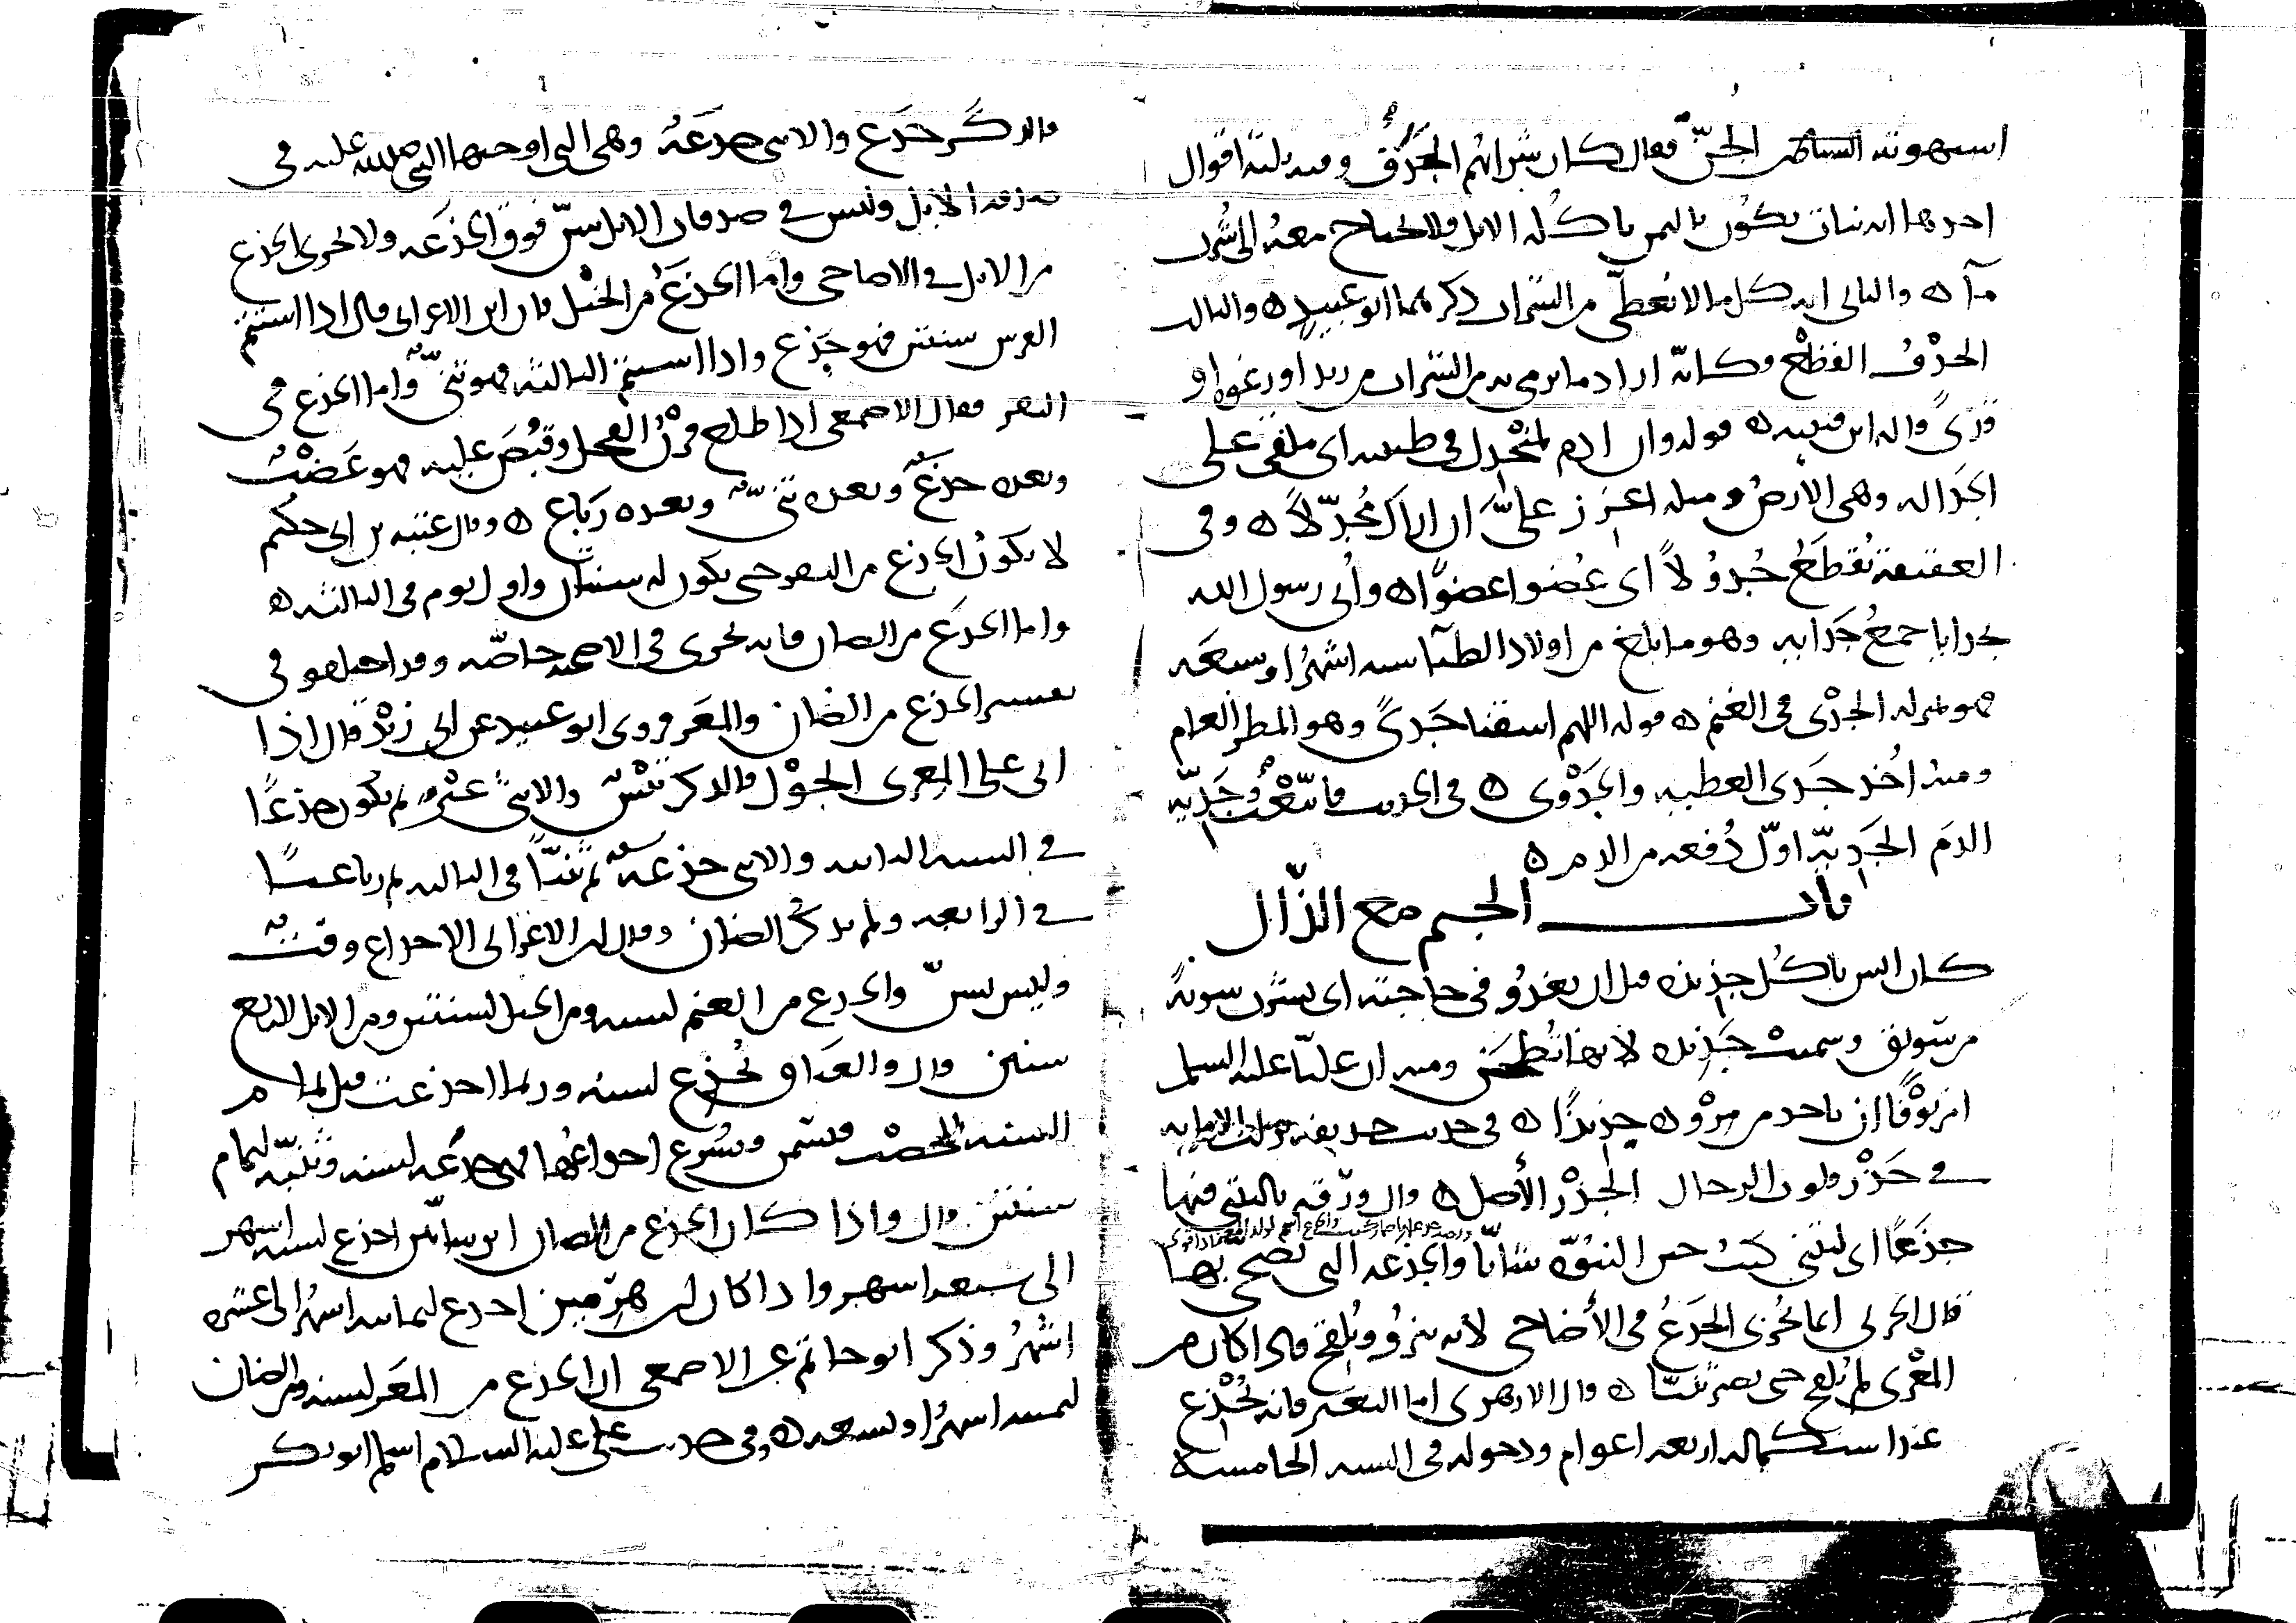 استهوته الشياطين الجن فقال كان شرابهم الجدف وفيه ثلثة اقوال
احدها انه نبات يكون باليمن ياكله الابل فلا يحتاج معه الى شرب
ماء ه والثاني انه كل ما لا يغطى من الشراب ذكرهما ابو عبيد ه والثالث
الجدف القطع وكانه اراد ما يرمى به من الشراب من زبد او رغوة او
قذى قاله ابن قتيبة ه قوله وان ادم لمنجدل في طينته اى ملقى على
الجدالة وهى الارض ومنه اعزز على ان اراك مجدلا ه وفى
العقيقة تقطع جدولا اى عضوا عضوا ه وأتى رسول الله
بجدايا جمع جداية وهو ما بلغ من اولاد الظباء ستة اشهر او سبعة
هو بمنزلة الجدى في الغنم ه قوله اللهم اسقنا جدى وهو المطر العام
ومنه اخذ جدى العطية والجدوى ه في الحديث فاتبعت جدية
الدم الجدية اول دفعة من الدم ه
باب الجيم مع الذال
كان انس ياكل جذيذة قبل ان يغدو في حاجته اى يشرب شربة
من سويق وسميت جذيذة لانها تطحن ومنه ان عليا عليه السلم
امر نوفا ان ياخذ من مزوده جذيذا ه في حديث حذيفة نزلت الامانة
في جذر قلوب الرجال الجذر الأصل ه قال ورقة ياليتني فيها
جذعا اى ليتنى كنت حين النبوة شابا والجذعة التى يضحى بها
قال الحربى انما يجزى الجذع في الأضاحى لانه ينزو ويلقح فاذا كان من
المعزى لم يلقح حتى يصير ثنيا ه قال الازهرى اما البعير فانه يجذع
عند استكماله اربعة اعوام ودخوله في السنة الخامسة
فالذكر جذع والانثى جذعة وهى التى اوجبها النبي صلى الله عليه في
صدقة الابل وليس في صدقات الابل سن فوق الجذعة ولا يجزى الجذع
من الابل في الاضاحى واما الجذع من الخيل فان ابن الاعرابى قال اذا استتم
الفرس سنتين فهو جذع واذا استتم الثالثة فهو ثنى واما الجذع فى
البقر فقال الاصمعى اذا طلع قرن العجل وقبض عليه فهو عضب
وبعده جذع وبعده ثنى وبعده رباع ه وقال عتبة بن ابى حكيم
لا يكون الجذع من البقر حتى يكون له سنتان واول يوم في الثالثة ه
واما الجذع من الضان فانه يجزى في الاضحية خاصة وقد اختلفو في
تفسير الجذع من الضان والمعز فروى ابو عبيد عن ابى زيد قال اذا
اتى على المعزى الحول فالذكر تيس والانثى عنز ثم يكون جذعا
في السنة الثانية والانثى جذعة ثم ثنيا في الثالثة ثم رباعيا
في الرابعة ولم يذكر الضان وقال ابن الاعرابى الاجذاع وقت
وليس بسن والجذع من الغنم لسنة ومن الخيل لسنتين ومن الابل لاربع
سنين قال والعناق تجذع لسنة وربما اجذعت قبل تمام
السنة للخصب فتسمن ويسرع اجذاعها فهى جذعة لسنة وثنية لتمام
سنتين قال واذا كان الجذع من الضان ابن شابين اجذع لستة اشهر
الى سبعة اشهر واذا كان ابن هرمين اجذع لثمانية اشهر الى عشرة
اشهر وذكر ابو حاتم عن الاصمعى ان الجذع من المعز لسنة ومن الضان
لثمنية اشهر او لتسعة ه وفي حديث على عليه السلام اسلم ابو بكر